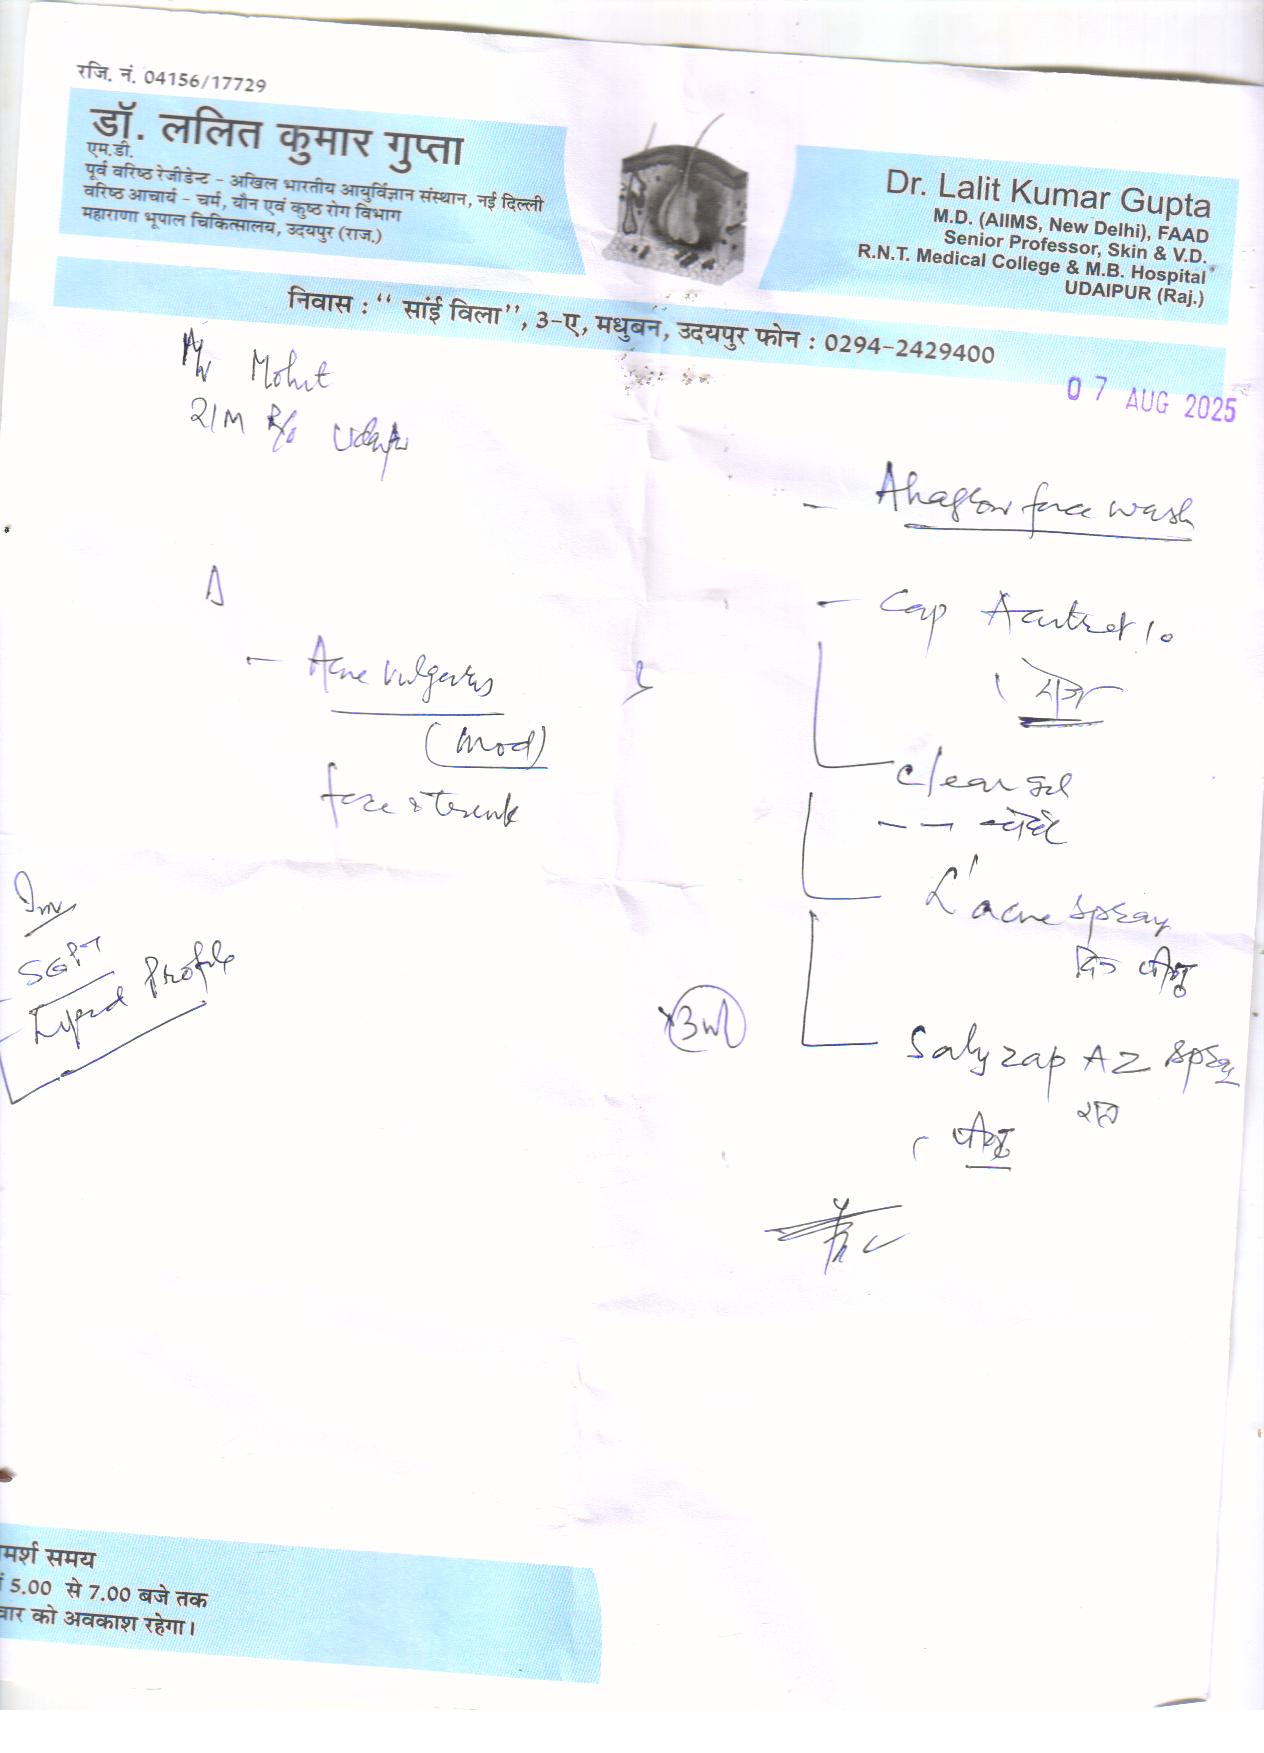 रजि. नं. 04156/17729
डॉ. ललित कुमार गुप्ता
एम.डी.
पूर्व वरिष्ठ रेजीडेन्ट - अखिल भारतीय आयुर्विज्ञान संस्थान, नई दिल्ली
वरिष्ठ आचार्य - चर्म, यौन एवं कुष्ठ रोग विभाग
महाराणा भूपाल चिकित्सालय, उदयपुर (राज.)
Dr. Lalit Kumar Gupta
M.D. (AIIMS, New Delhi), FAAD
Senior Professor, Skin & V.D.
R.N.T. Medical College & M.B. Hospital
UDAIPUR (Raj.)
निवास : “ सांई विला”, 3-ए, मधुबन, उदयपुर फोन : 0294-2429400
07 AUG 2025
Mohit
21M R/o
Ahaglow face wash
Cap Acutret 10
रोज
Acne vulgaris
(Mod)
face & trunk
clear gel
चेहरे
L'acne spray
दिन पीठ
Inv
SGPT
Lipid Profile
Salyzap AZ spray
रात
पीठ
मर्श समय
5.00 से 7.00 बजे तक
वार को अवकाश रहेगा।